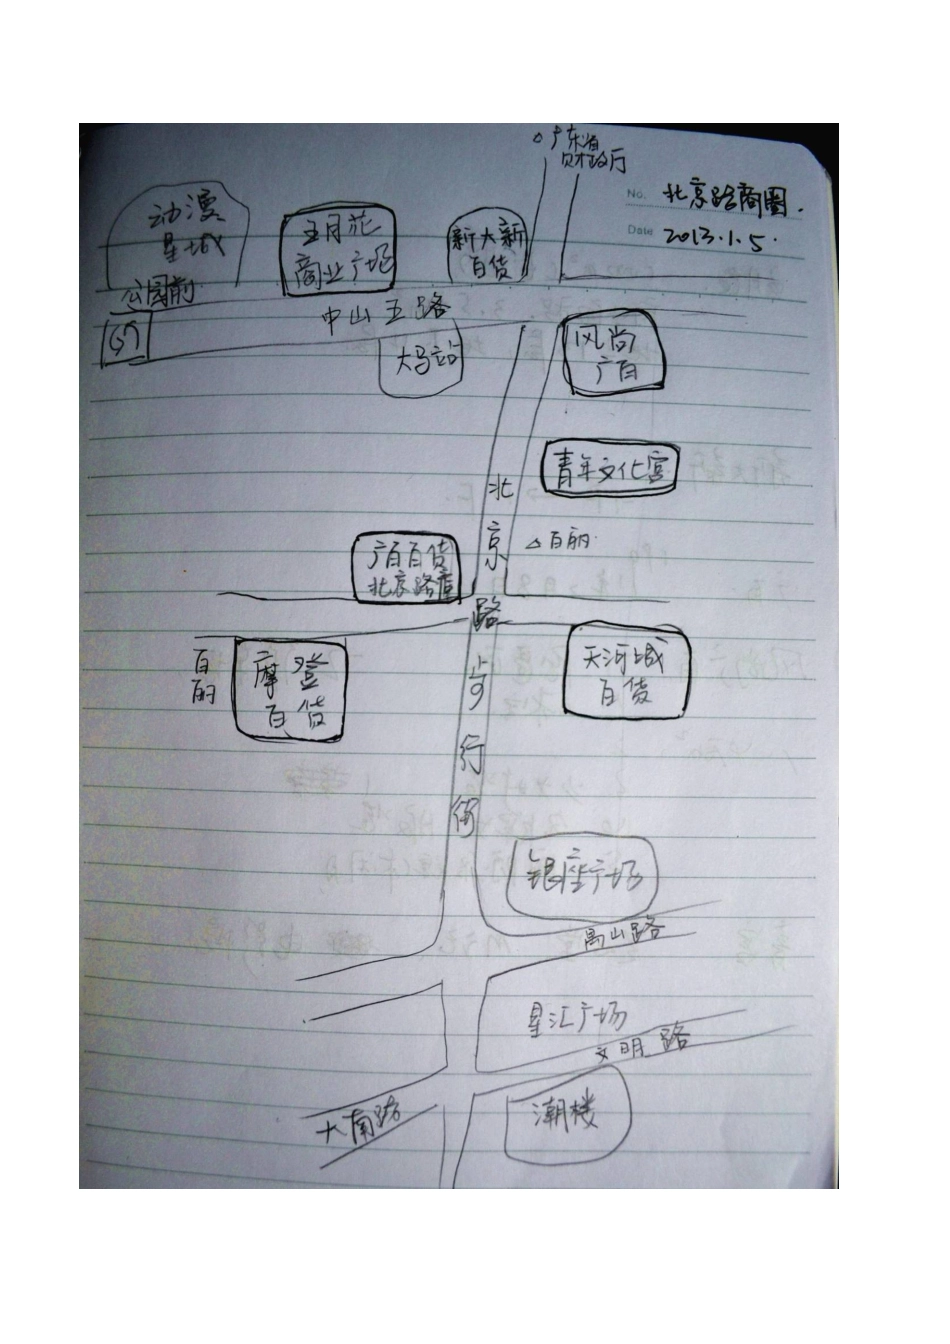 广东省
财政厅
No. 北京路商圈.
Date 2013.1.5.
动漫
星城
五月花
商业广场
新大新
百货
公园前
中山五路
大马站
风尚
广百
青年文化宫
北京路步行街
△百丽.
广百百货
北京路店
百丽
摩登
百货
天河城
百货
银座广场
禺山路
星汇广场
文明路
大南路
潮楼